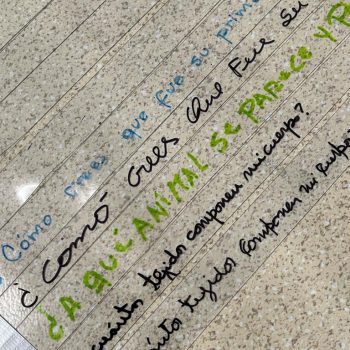 Cómo crees que fue su prime
¿Como crees que fue su
¿A QUÉ ANIMAL SE PARECE Y P
cuántos tejidos componen mi cuerpo?
ntos tejidos componen mi cuerpo